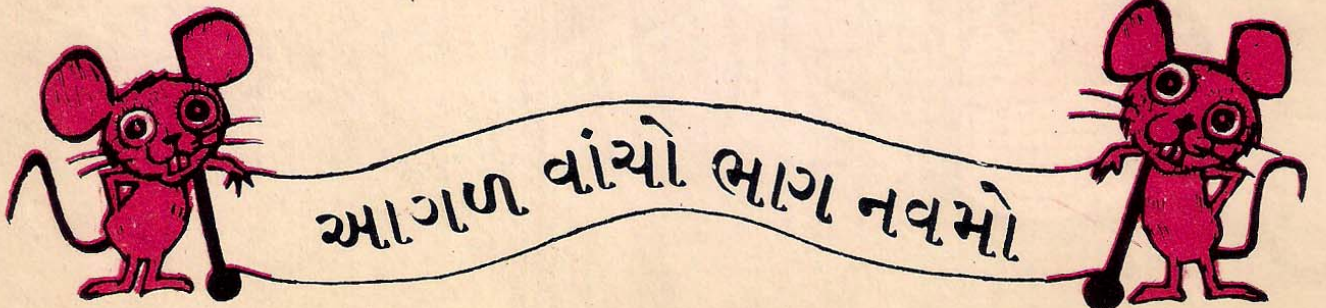 આગળ વાંચો ભાગ નવમો